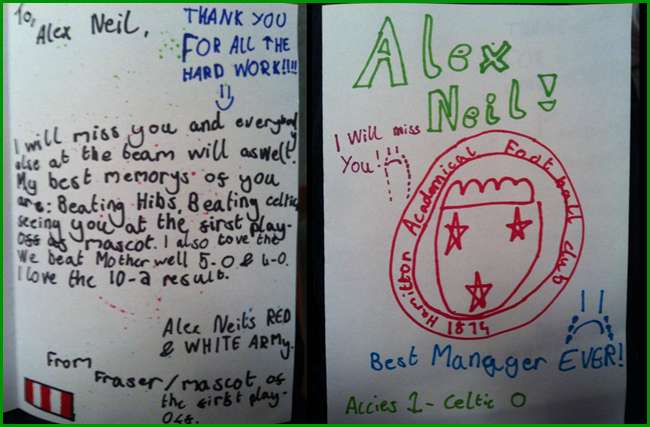 To,
Alex Neil,
THANK YOU
FOR ALL THE
HARD WORK!!!!
I will miss you and everybody
else at the team will aswell.
My best memorys of you
are: Beating Hibs, Beating celtic,
seeing you at the first play-
offs as mascot. I also love the
We beat Motherwell 5-0 & 4-0.
I love the 10-2 result.
Alex Neil's RED
& WHITE ARMY.
From
Fraser/mascot of
the first play-
offs.
Alex
Neil!
I Will miss
You!
Hamilton Academical Football club
1874
Best Manager EVER!
Accies 1 - Celtic 0